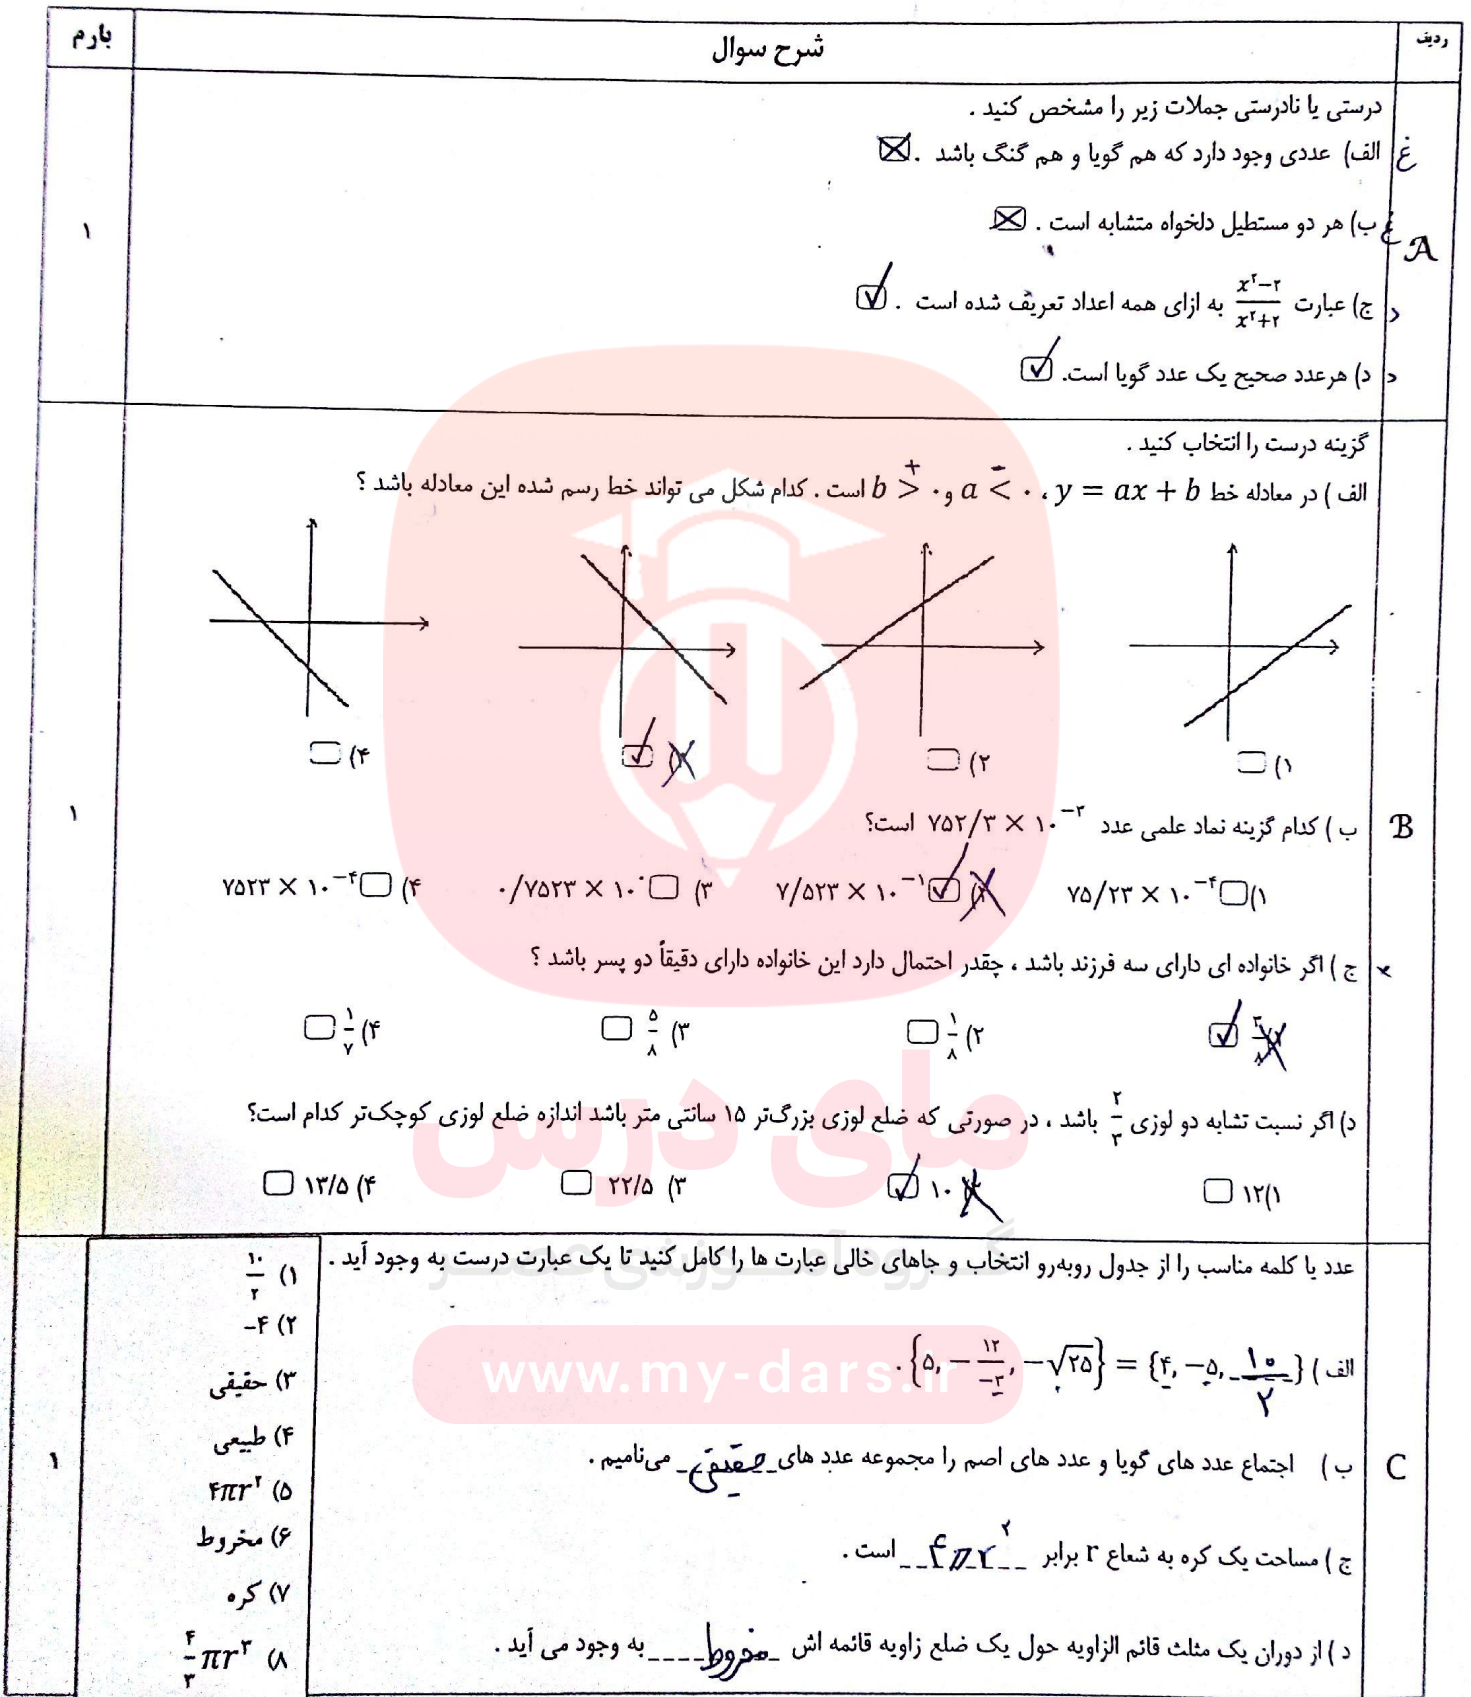 ردیف شرح سوال بارم
درستی یا نادرستی جملات زیر را مشخص کنید .
غ الف) عددی وجود دارد که هم گویا و هم گنگ باشد .
غ ب) هر دو مستطیل دلخواه متشابه است .
A ۱
د ج) عبارت x²−۲ / x²+۲ به ازای همه اعداد تعریف شده است .
د د) هرعدد صحیح یک عدد گویا است.
گزینه درست را انتخاب کنید .
الف ) در معادله خط y = ax + b ، a < ۰ و b > ۰ است . کدام شکل می تواند خط رسم شده این معادله باشد ؟
− +
۱) ۲) ۳) ۴)
B ۱
ب ) کدام گزینه نماد علمی عدد ۷۵۲/۳ × ۱۰⁻³ است؟
۱) ۷۵/۲۳ × ۱۰⁻⁴ ۲) ۷/۵۲۳ × ۱۰⁻¹ ۳) ۰/۷۵۲۳ × ۱۰⁰ ۴) ۷۵۲۳ × ۱۰⁻⁴
ج ) اگر خانواده ای دارای سه فرزند باشد ، چقدر احتمال دارد این خانواده دارای دقیقاً دو پسر باشد ؟
۱) ۳/۸ ۲) ۱/۸ ۳) ۵/۸ ۴) ۱/۷
د) اگر نسبت تشابه دو لوزی ۲/۳ باشد ، در صورتی که ضلع لوزی بزرگ‌تر ۱۵ سانتی متر باشد اندازه ضلع لوزی کوچک‌تر کدام است؟
۱) ۱۲ ۲) ۱۰ ۳) ۲۲/۵ ۴) ۱۳/۵
مای درس
عدد یا کلمه مناسب را از جدول روبه‌رو انتخاب و جاهای خالی عبارت ها را کامل کنید تا یک عبارت درست به وجود آید .
الف ) {۵, −۱۲/−۳, −√۲۵} = {۴, −۵, ۱۰/۲} .
www.my-dars.ir
C ۱
ب ) اجتماع عدد های گویا و عدد های اصم را مجموعه عدد های حقیقی می‌نامیم .
ج ) مساحت یک کره به شعاع r برابر ۴πr² است .
د ) از دوران یک مثلث قائم الزاویه حول یک ضلع زاویه قائمه اش مخروط به وجود می آید .
۱) ۱۰/۲
۲) −۴
۳) حقیقی
۴) طبیعی
۵) ۴πr²
۶) مخروط
۷) کره
۸) ۴/۳ πr³